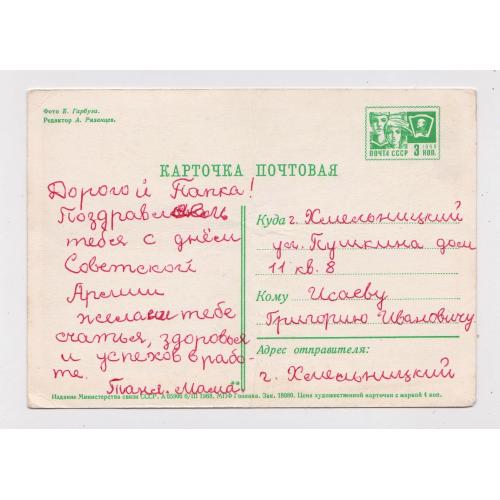 Фото Б. Гарбуза.
Редактор А. Рязанцев.
1966
ПОЧТА СССР 3 КОП.
КАРТОЧКА ПОЧТОВАЯ
Дорогой Папка!
Поздрав
тебя с днём
Советской
Армии
желаем тебе
счастья, здоровья
и успехов в рабо-
те.
Таня, Мама
Куда г. Хмельницкий
ул. Пушкина дом
11 кв. 8
Кому Исаеву
Григорию Ивановичу
Адрес отправителя:
г. Хмельницкий
Издание Министерства связи СССР. А 05966 6/III 1968. МПФ Гознака. Зак. 18080. Цена художественной карточки с маркой 4 коп.